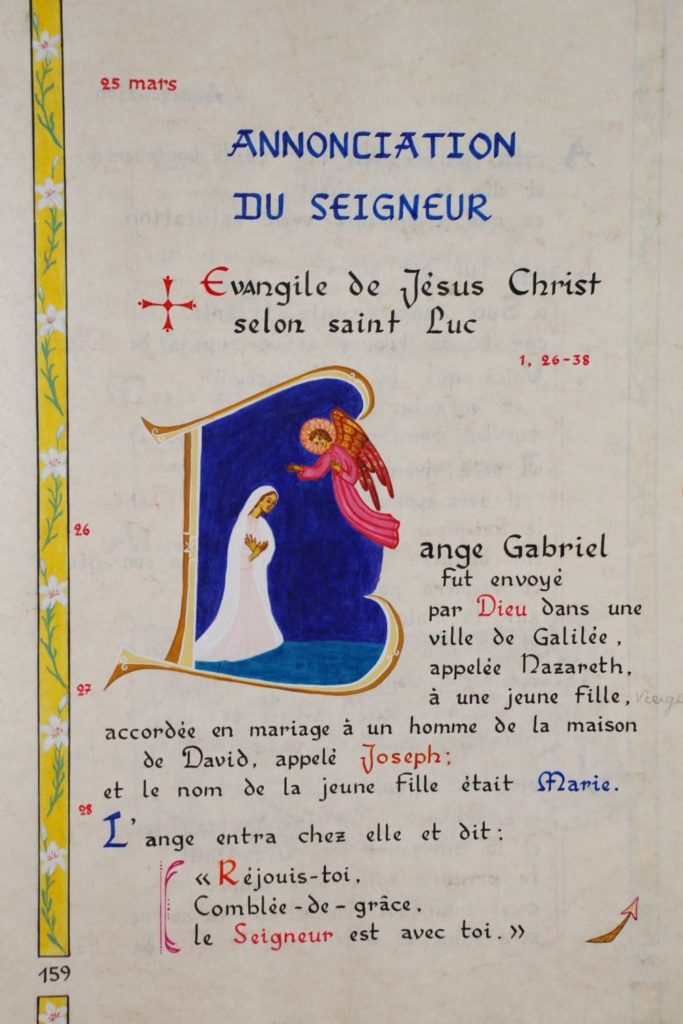 25 mars
ANNONCIATION
DU SEIGNEUR
Evangile de Jésus Christ
selon saint Luc
1, 26-38
26
L'ange Gabriel
fut envoyé
par Dieu dans une
ville de Galilée,
appelée Nazareth,
27
à une jeune fille, Vierge
accordée en mariage à un homme de la maison
de David, appelé Joseph;
et le nom de la jeune fille était Marie.
28
L'ange entra chez elle et dit :
« Réjouis-toi,
Comblée-de-grâce,
le Seigneur est avec toi. »
159